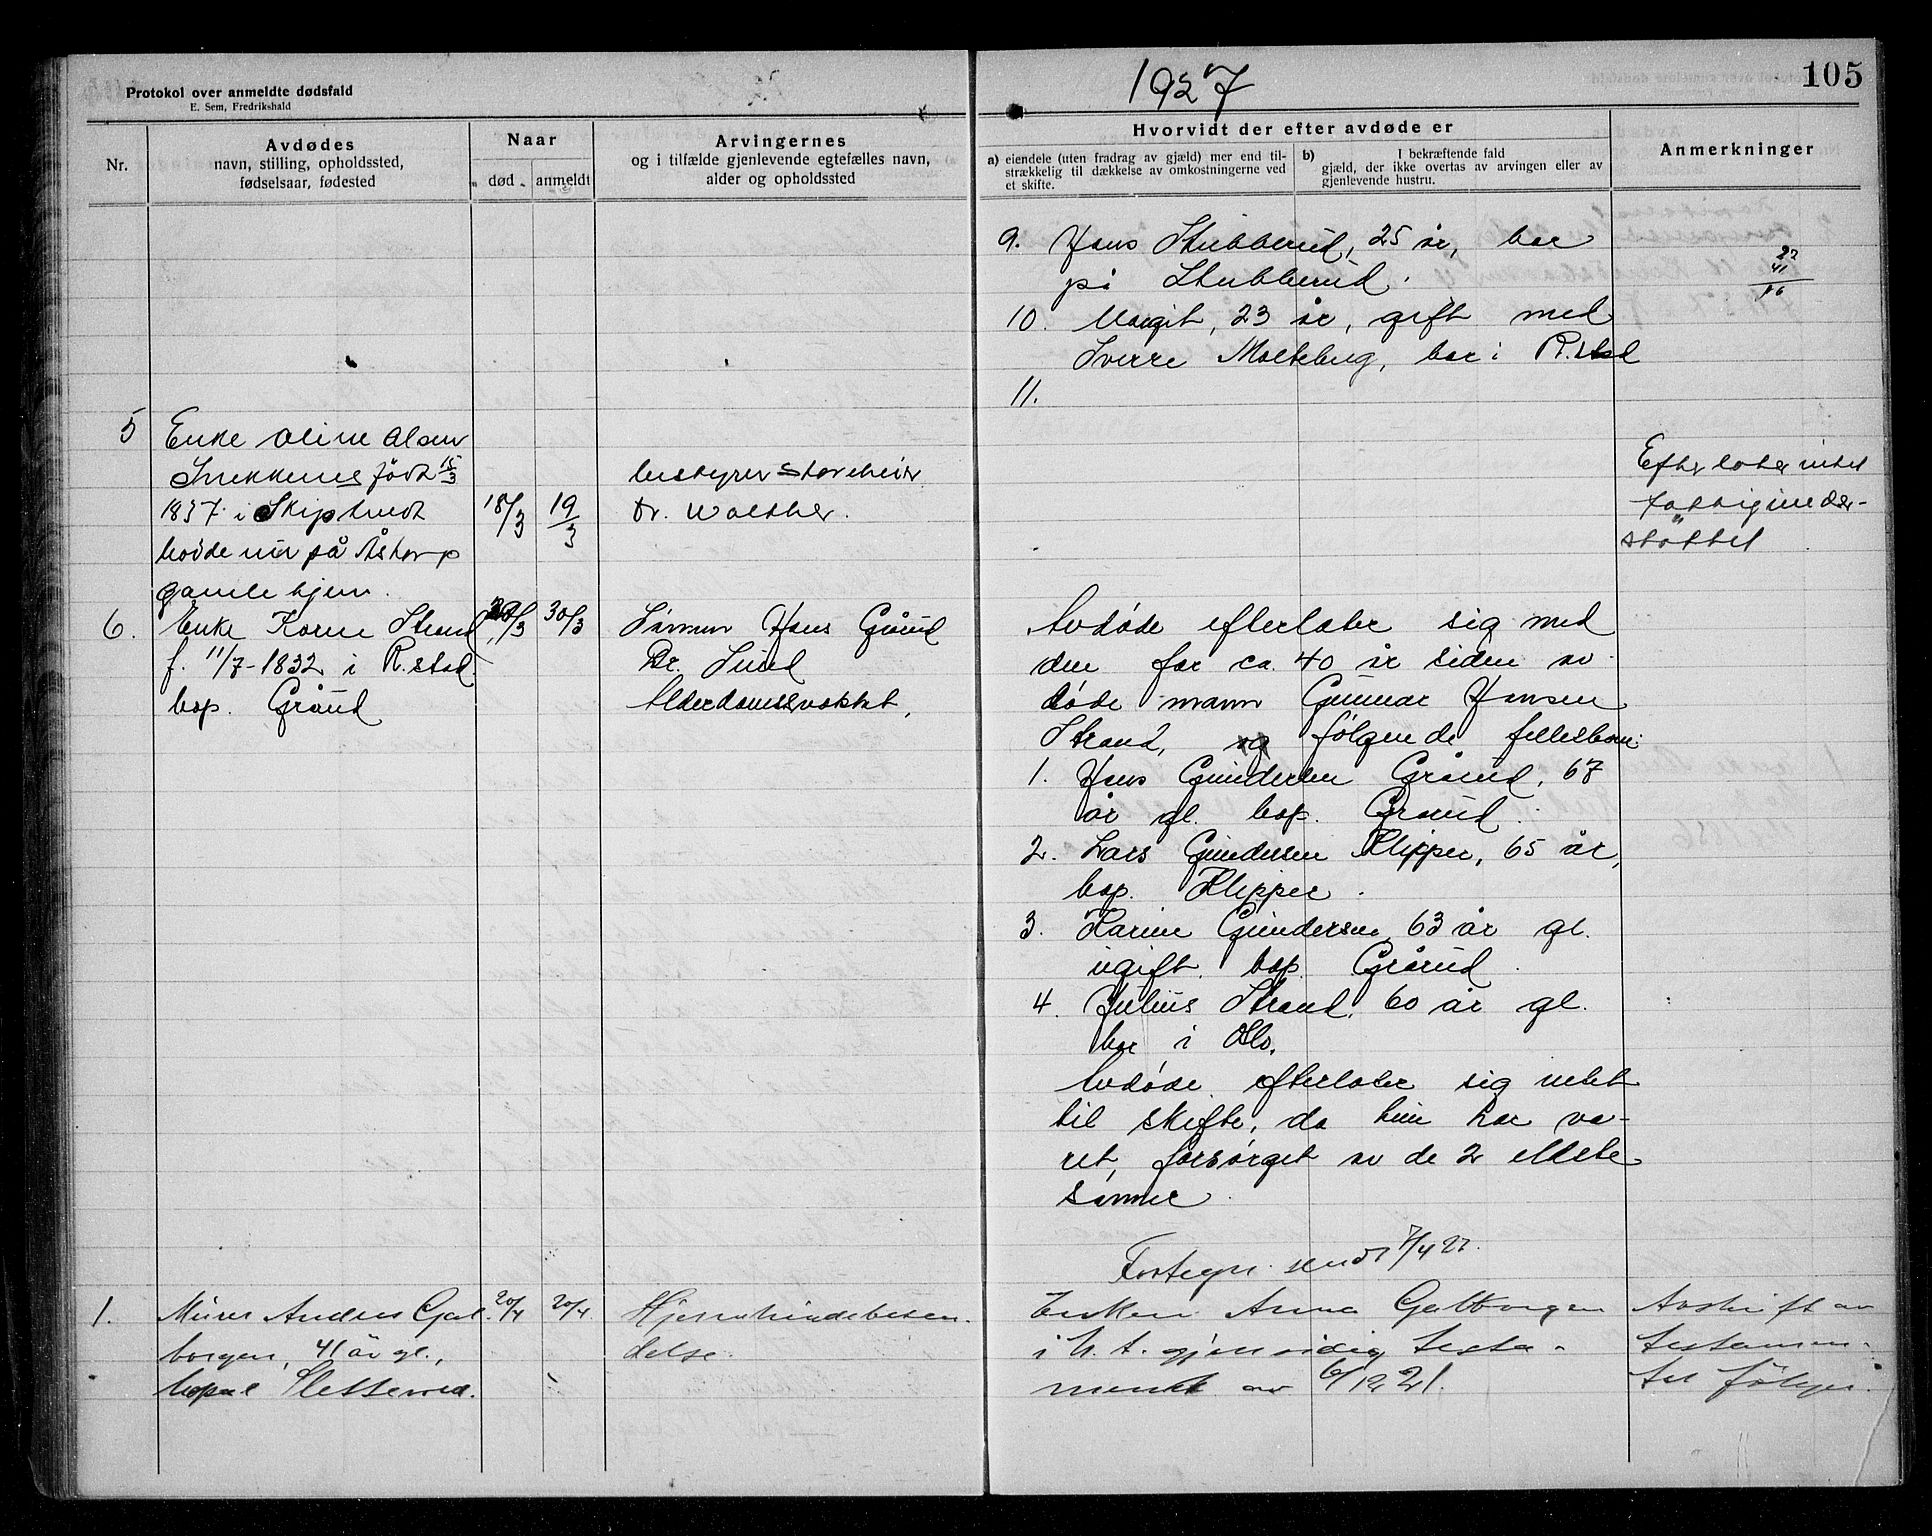 Protokol over anmeldte dødsfald
E. Sem, Fredrikshald
1927
105
Nr.
Avdødes
navn, stilling, opholdssted,
fødselsaar, fødested
Naar
død
anmeldt
Arvingernes
og i tilfælde gjenlevende egtefælles navn,
alder og opholdssted
Hvorvidt der efter avdøde er
a) eiendele (uten fradrag av gjæld) mer end til-
strækkelig til dækkelse av omkostningerne ved
et skifte.
b) I bekræftende fald
gjæld, der ikke overtas av arvingen eller av
gjenlevende hustru.
Anmerkninger
9. Hans Stubberud, 25 år, bor
på Stubberud.
27
41
10. Margit, 23 år, gift med
Sverre Moltebug, bor i R.stad
11.
5
Enke Oline Olsen
født 15/3
1837 i Skiptvedt
på Åstorp
gamle hjem.
18/3
19/3
bestyrer
Dr. Walther.
Efterlater intet
fattigunder-
støttet
6.
Enke Karen Strand
f. 11/7-1832 i R.stad.
bop. Gråud
29/3
30/3
Sønnen Hans Gråud
Dr. Lund
Alderdomssvakhet.
Avdøde efterlater sig med
den for ca. 40 år siden av-
døde mann Gunnar Hansen
Strand, og følgende fellesbarn:
1. Hans Gundersen Gråud, 67
år gl. bop. Gråud.
2. Lars Gundersen Klipper, 65 år,
bop. Klipper.
3. Karine Gundersen 63 år gl.
ugift. bop. Gråud.
4. Julius Strand, 60 år gl.
bor i Oslo.
Avdøde efterlater sig intet
til skifte, da hun har væ-
ret forsørget av de 2 eldste
sønner.
Fortegn. sendt 7/4 27.
1.
Murer Anders Gal-
borgen, 41 år gl.,
bopæl Slettevold.
20/4
20/4
Hjernehindebeten-
delse.
Enken Anna Galborgen
i h. t. gjensidig testa-
ment av 6/12 21.
Avskrift av
testamen-
tet følger.